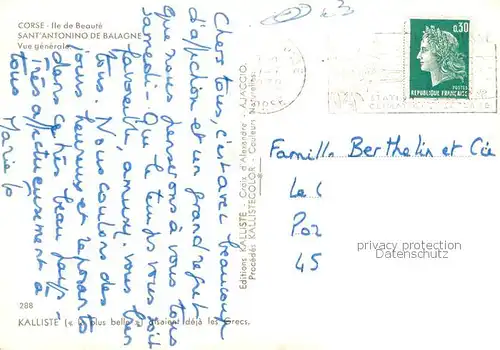 CORSE - Ile de Beauté
SANT'ANTONINO DE BALAGNE
Vue générale
Chers tous, c'est avec beaucoup
d'affection et un grand regret
que nous penserons à vous tous
samedi - Que le temps vous soit
favorable, amusez vous bien
tous. Nous coulons des
jours heureux et reposants
dans ce très beau pays -
très affectueusement à
tous
Marie
Editions KALLISTE - Croix d'Alexandre - AJACCIO
Procédés KALLISTECOLOR - Couleurs Naturelles
0,30
POSTES
REPUBLIQUE FRANÇAISE
Famille Berthelin et Cie
45
privacy protection
Datenschutz
288
KALLISTE (« plus belle ») disaient déjà les Grecs.